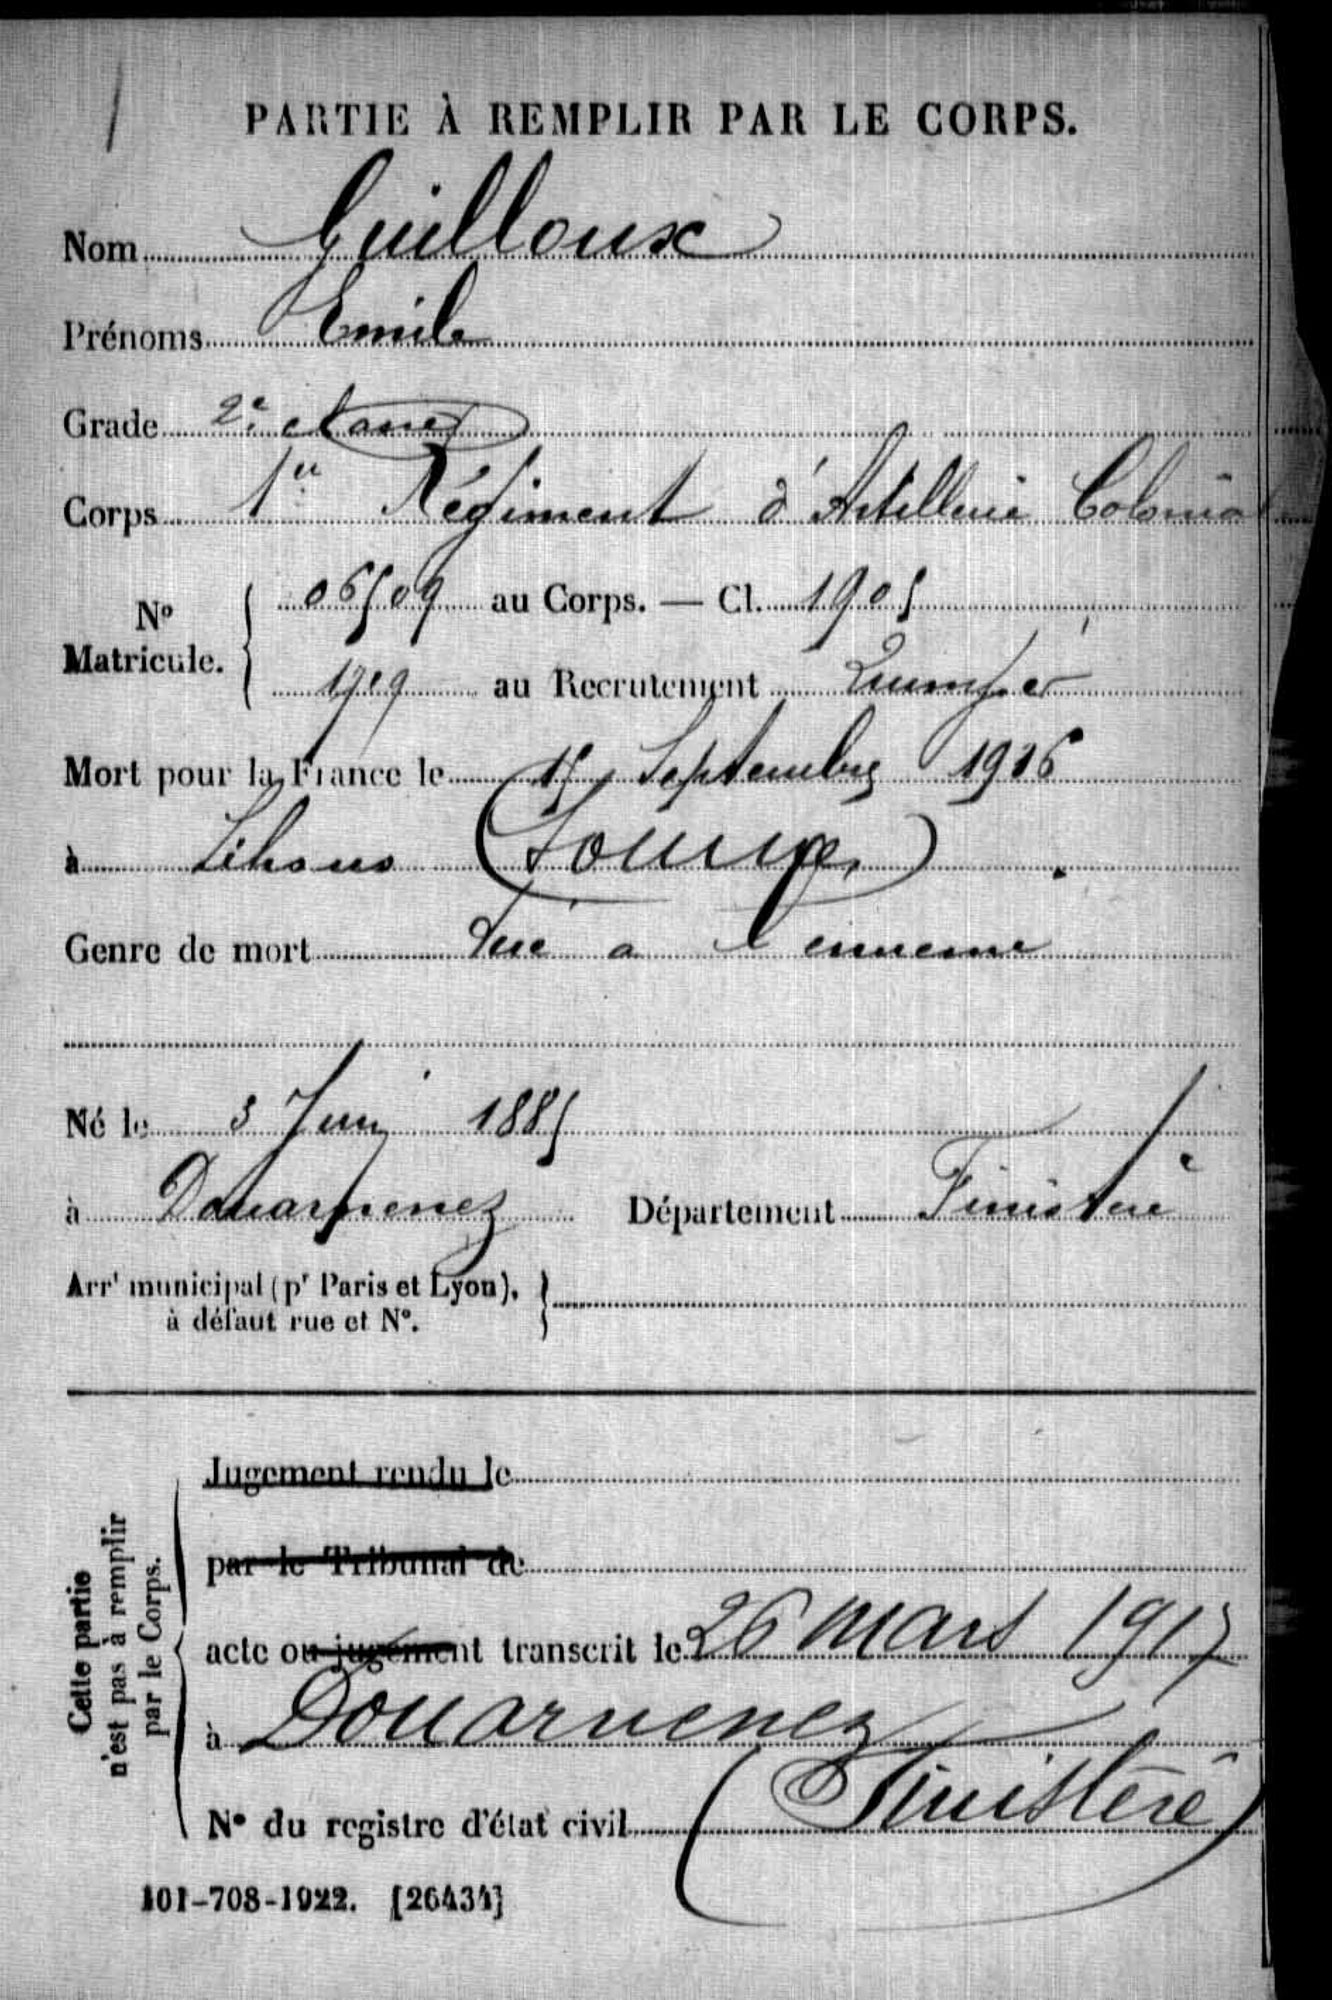 PARTIE À REMPLIR PAR LE CORPS.
Nom Guilloux
Prénoms Emile
Grade 2e classe
Corps 1er Régiment d'Artillerie Colonia
06509 au Corps. — Cl. 1905
No
Matricule.
1909 au Recrutement Quimper
Mort pour la France le 15 Septembre 1916
à Lihons (Somme)
Genre de mort Tué à l'ennemi
Né le 3 Juin 1885
à Douarnenez Département Finistère
Arrt municipal (pr Paris et Lyon),
à défaut rue et No.
Cette partie
n'est pas à remplir
par le Corps.
Jugement rendu le
par le Tribunal de
acte ou jugement transcrit le 26 mars 1917
à Douarnenez
(Finistère)
No du registre d'état civil
101-708-1922. [26434]